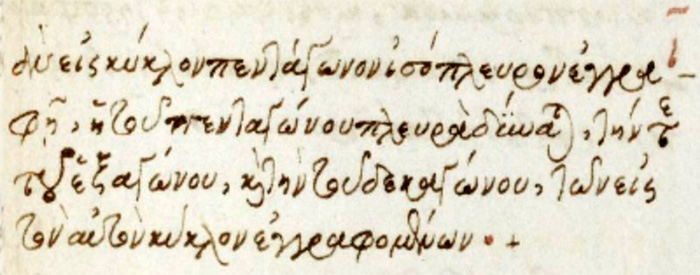 ὰν εἰς κύκλον πεντάγωνον ἰσόπλευρον ἐγγρα
φῇ, ἡ τοῦ πενταγώνου πλευρὰ δύναται, τήν τε
τοῦ ἑξαγώνου, καὶ τὴν τοῦ δεκαγώνου, τῶν εἰς
τὸν αὐτὸν κύκλον ἐγγραφομένων